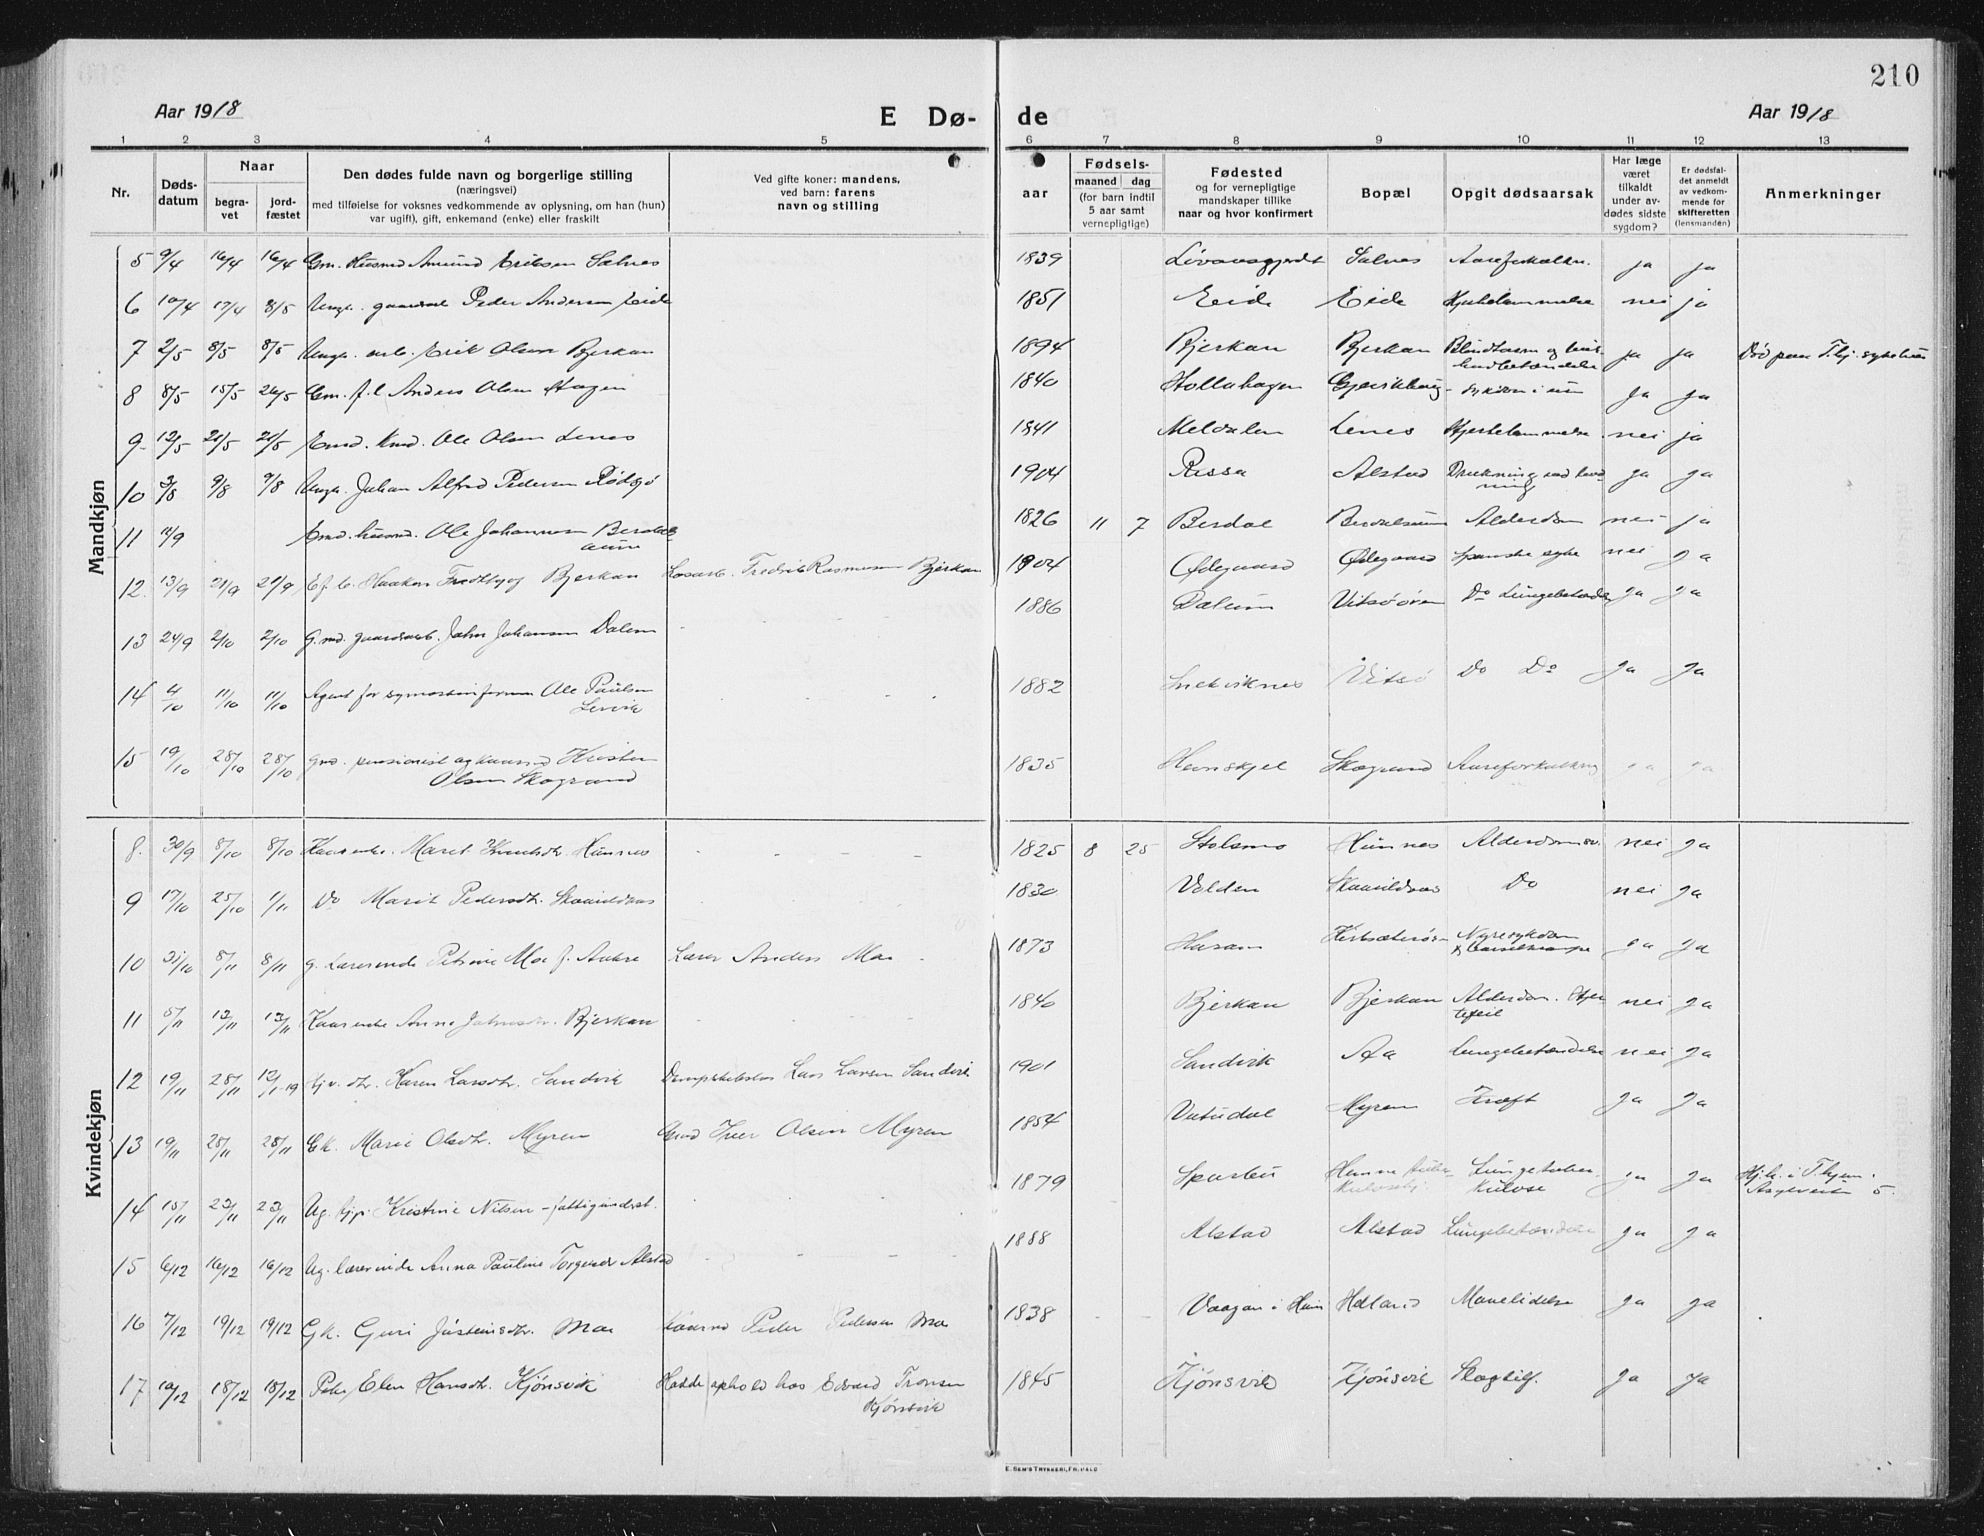 210
Aar 1918
E Dø-
de
Aar 1918
1 2 3 4 5 6 7 8 9 10 11 12 13
Nr.
Døds-
datum
Naar
begra-
vet
jord-
fæstet
Den dødes fulde navn og borgerlige stilling
(næringsvei)
med tilføielse for voksnes vedkommende av oplysning, om han (hun)
var ugift), gift, enkemand (enke) eller fraskilt
Ved gifte koner: mandens,
ved barn: farens
navn og stilling
aar
Fødsels-
maaned dag
(for barn indtil
5 aar samt
vernepligtige)
Fødested
og for vernepligtige
mandskaper tillike
naar og hvor konfirmert
Bopæl
Opgit dødsaarsak
Har læge
været
tilkaldt
under av-
dødes sidste
sygdom?
Er dødsfal-
det anmeldt
av vedkom-
mende for
skifteretten
(lensmanden)
Anmerkninger
Mandkjøn
5 9/4 16/4 16/4 Gm. Husmd Amund Eriksen Salnes 1839 Salnes Aareforkalkn. ja ja
6 10/4 17/4 8/5 Ungk. gaardarb Peder Andersen Eide 1851 Eide Eide Hjertelammelse nei ja
7 2/5 8/5 8/5 Ungk. arb. Erik Olsen Bjerkan 1894 Bjerkan Bjerkan Blindtarm og buk-
hindbetændelse ja ja Død paa T.hj. sykehus
8 8/5 15/5 26/5 Gm. f.l Anders Olsen Hagen 1840 Hollahagen ja ja
9 12/5 21/5 21/5 Emd. Kmd. Ole Olsen Lenes 1841 Meldalen Lenes Hjertelammelse nei ja
10 3/8 9/8 9/8 Ungk. Johan Alfred Pedersen Rødsjø 1904 Rissa Alstad Drukning ved bad-
ning ja ja
11 12/9 Emd. husmd. Ole Johannesen Berdals
aune 1826 11 7 Berdal Berdalsaun Alderdom nei ja
12. 13/9 21/9 21/9 Haakon Fredthjog Bjerkan Løsarb. Fredrik Rasmussen Bjerkan 1904 Ødegaard Ødegaard Spanske syke nei ja
13 24/9 2/10 2/10 G.md. gaardarb. John Johansen Dalum 1886 Dalum Vitsøøren Do Lungebetænd. ja ja
14 4/10 11/10 11/10 Agent for symaskinfirma Ole Paulsen
Lervik 1882 Snekviknes Vitsø Do Do ja ja
15 19/10 28/10 28/10 Gmd. pensionist og kaarmd Kristen
Olsen Skogrand 1835 Hamskjel Skogrand Aareforkalkning ja ja
Kvindekjøn
8. 30/9 8/10 8/10 Kaarenke. Marit Knudsdtr. Hunnes 1825 8 25 Stolsmo Hunnes Alderdomssv. nei ja
9 17/10 25/10 1/11 Do Marit Pedersdtr. Skauildnes 1830 Volden Skauildnes Do nei ja
10 31/10 8/11 8/11 g. Lærerinde Petrine Moe f. Aukre Lærer Anders Moe 1873 Kirksæterøren Nyresykdom
& Barselkrampe ja ja
11 5/11 13/11 13/11 Kaarenke Anne Johnsdtr. Bjerkan 1840 Bjerkan Bjerkan Alderdom. Hjer
tefeil nei ja
12 19/11 28/11 12/1-19 Gjv. dtr. Karen Larsdtr. Sandvik Dampskibslos Lars Larsen Sandvik 1901 Sandvik Aa Lungebetændelse nei ja
13 19/11 28/11 28/11 Gk. Marie Olsdtr. Myren Gmd Iver Olsen Myren 1854 Vutudal Myren Kræft ja ja
14 15/11 23/11 23/11 Ug. hjp. Kristine Nilsen - fattigunderst. 1879 Sparbu Hemne tuber-
kulosehj. Lungetuber-
kulose ja ja Hj.h. i T.hjem.
Asylveita 5.
15 6/12 16/12 16/12 Ug. lærerinde Anna Pauline Torgersdr Alstad 1888 Alstad Alstad Lungebetændelse ja ja
16 7/12 19/12 19/12 Gk. Guri Jústeinsdtr. Moe Kaarmd Peder Pedersen Moe 1838 Vaagan i Heim Hølland Mavelidelse ja ja
17 10/12 18/12 18/12 Elen Hansdtr. Kjønsvik Hadde ophold hos Edvard Tronsen
Kjønsvik 1845 Kjønsvik Kjønsvik Slagtilf. ja ja
E. SEM'S TRYKKERI, FR.HALD